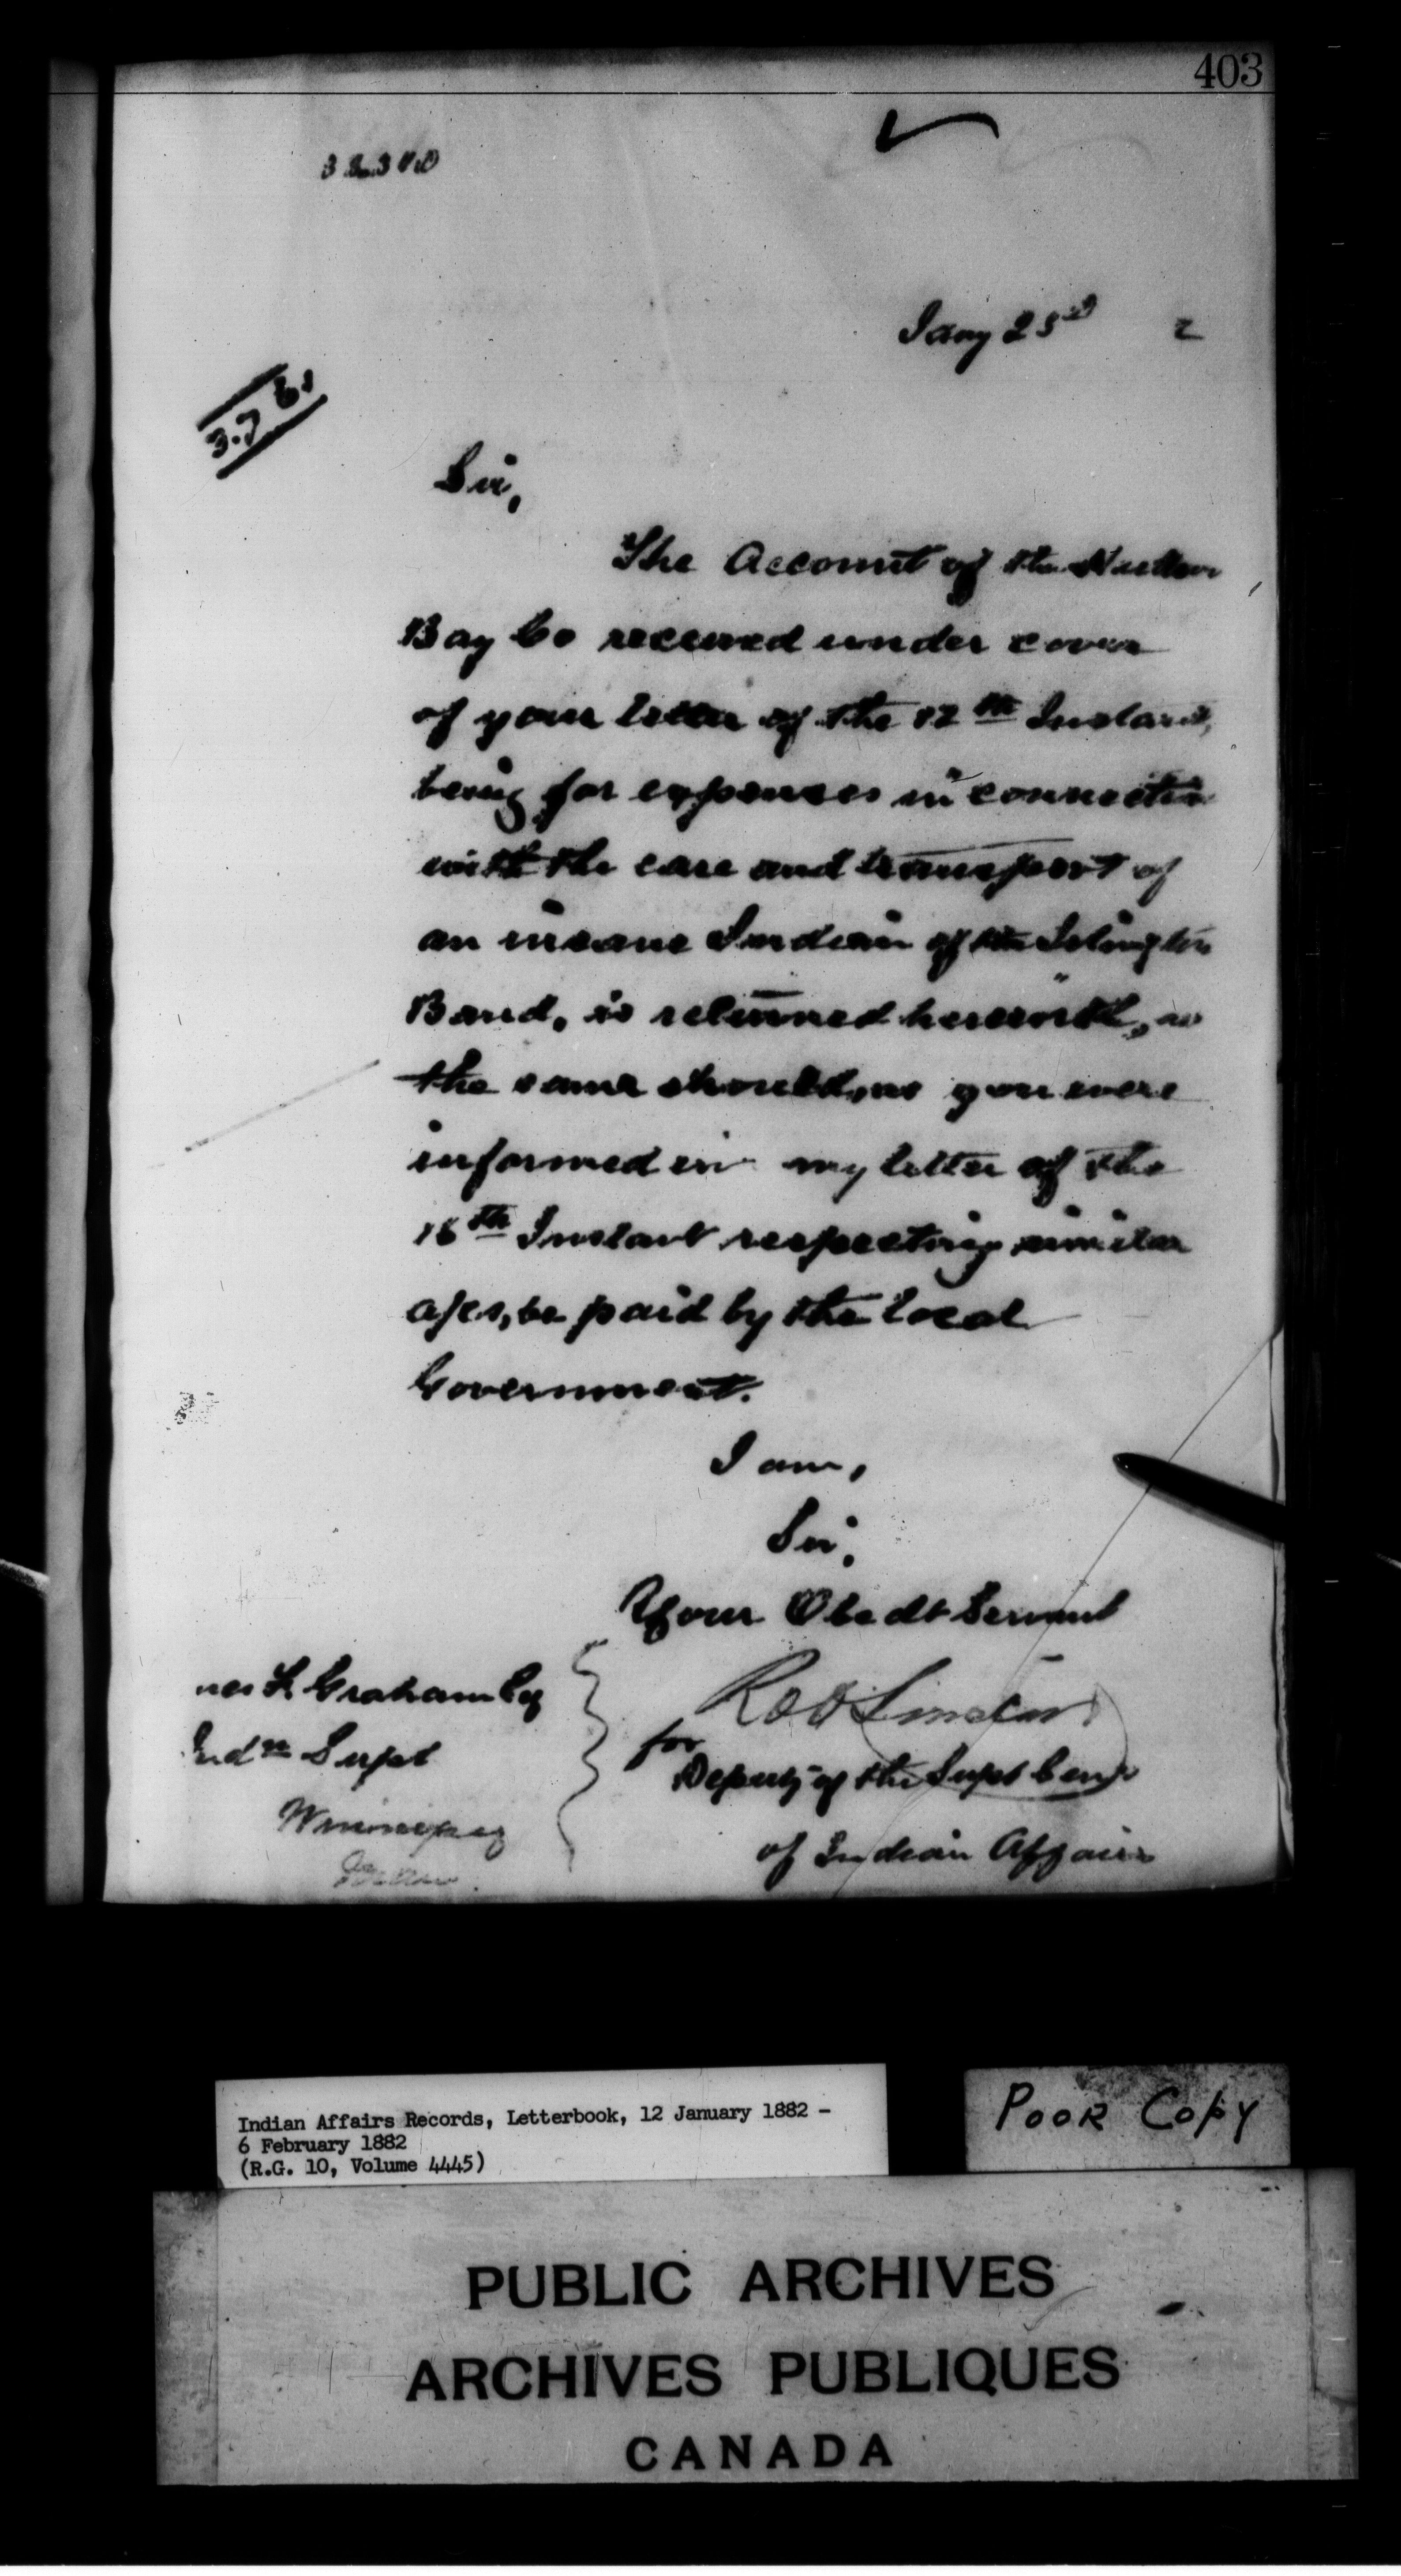 403
Jany 25th 2
Sir,
The Account of the Hudson
Bay Co received under cover
of your letter of the 12th Instant,
being for expenses in connection
with the care and transport of
an insane Indian of the Islington
Band, is returned herewith, as
the same should, as you were
informed in my letter of the
16th Instant respecting similar
a/cs, be paid by the local
Government.
I am,
Sir,
Your Obedt Servant
for
Deputy of the Supt Genl
of Indian Affairs
Graham Esq
Indn Supt
Winnipeg
Indian Affairs Records, Letterbook, 12 January 1882 -
6 February 1882
(R.G. 10, Volume 4445)
POOR COPY
PUBLIC ARCHIVES
ARCHIVES PUBLIQUES
CANADA